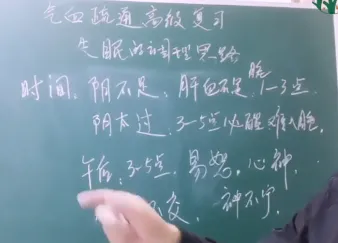 气血疏通高级复习
失眠的调理思路
时间,阴不足、肝血不足 胆 1-3点
阴太过,3-5点必醒难入眠,
午后,3-5点,易怒,心神,
不交、神不宁,